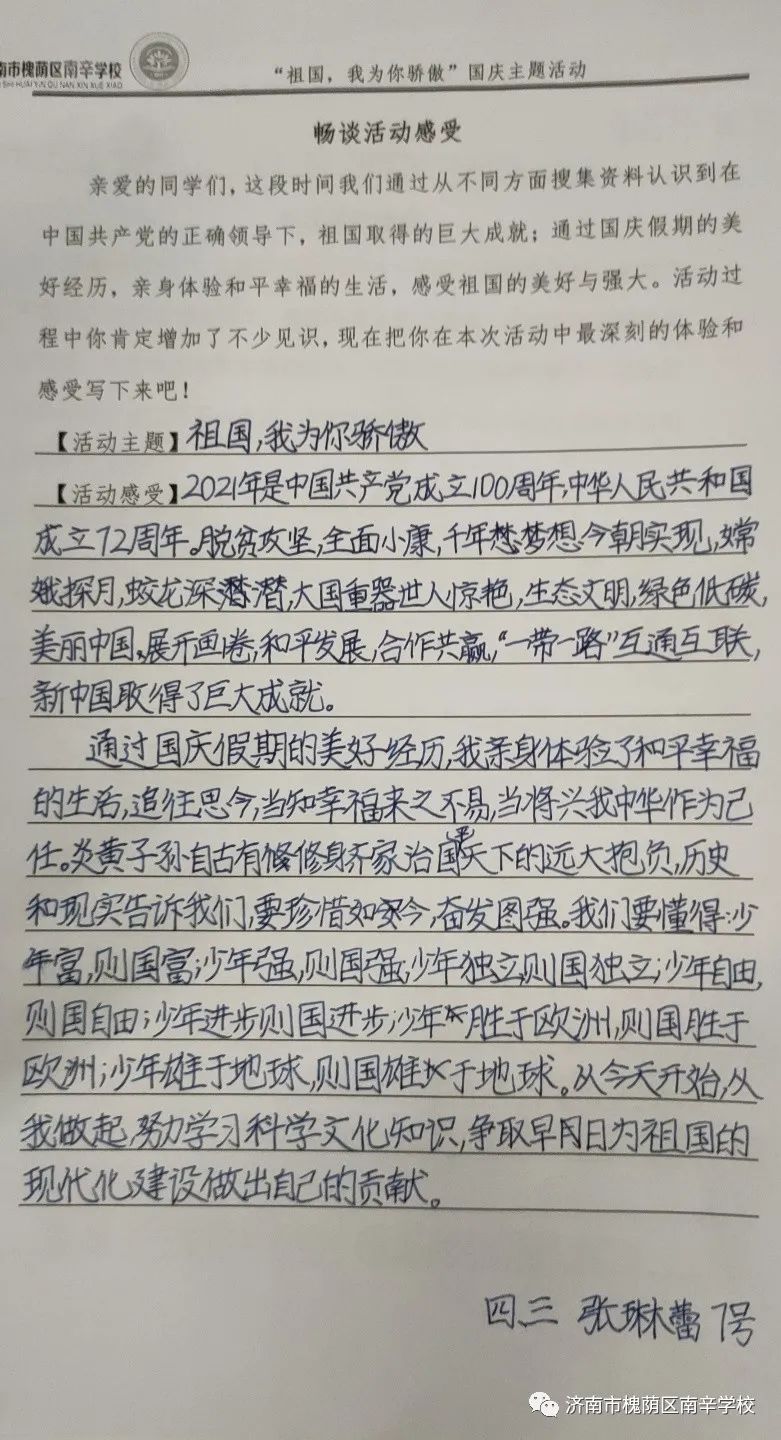 南市槐荫区南辛学校
SHI HUAI YIN QU NAN XIN XUE XIAO
“祖国，我为你骄傲”国庆主题活动
畅谈活动感受
亲爱的同学们，这段时间我们通过从不同方面搜集资料认识到在
中国共产党的正确领导下，祖国取得的巨大成就；通过国庆假期的美
好经历，亲身体验和平幸福的生活，感受祖国的美好与强大。活动过
程中你肯定增加了不少见识，现在把你在本次活动中最深刻的体验和
感受写下来吧！
【活动主题】祖国，我为你骄傲
【活动感受】2021年是中国共产党成立100周年，中华人民共和国
成立72周年。脱贫攻坚，全面小康，千年梦想今朝实现，嫦
娥探月，蛟龙深潜，大国重器世人惊艳，生态文明，绿色低碳，
美丽中国，展开画卷，和平发展，合作共赢，“一带一路”互通互联，
新中国取得了巨大成就。
通过国庆假期的美好经历，我亲身体验了和平幸福
的生活，追往思今，当知幸福来之不易，当将兴我中华作为己
任。炎黄子孙自古有修身齐家治国平天下的远大抱负，历史
和现实告诉我们，要珍惜如今，奋发图强。我们要懂得：少
年富，则国富；少年强，则国强；少年独立，则国独立；少年自由，
则国自由；少年进步则国进步；少年胜于欧洲，则国胜于
欧洲；少年雄于地球，则国雄于地球。从今天开始，从
我做起，努力学习科学文化知识，争取早日为祖国的
现代化建设做出自己的贡献。
四、三 张琳蕾 7号
济南市槐荫区南辛学校